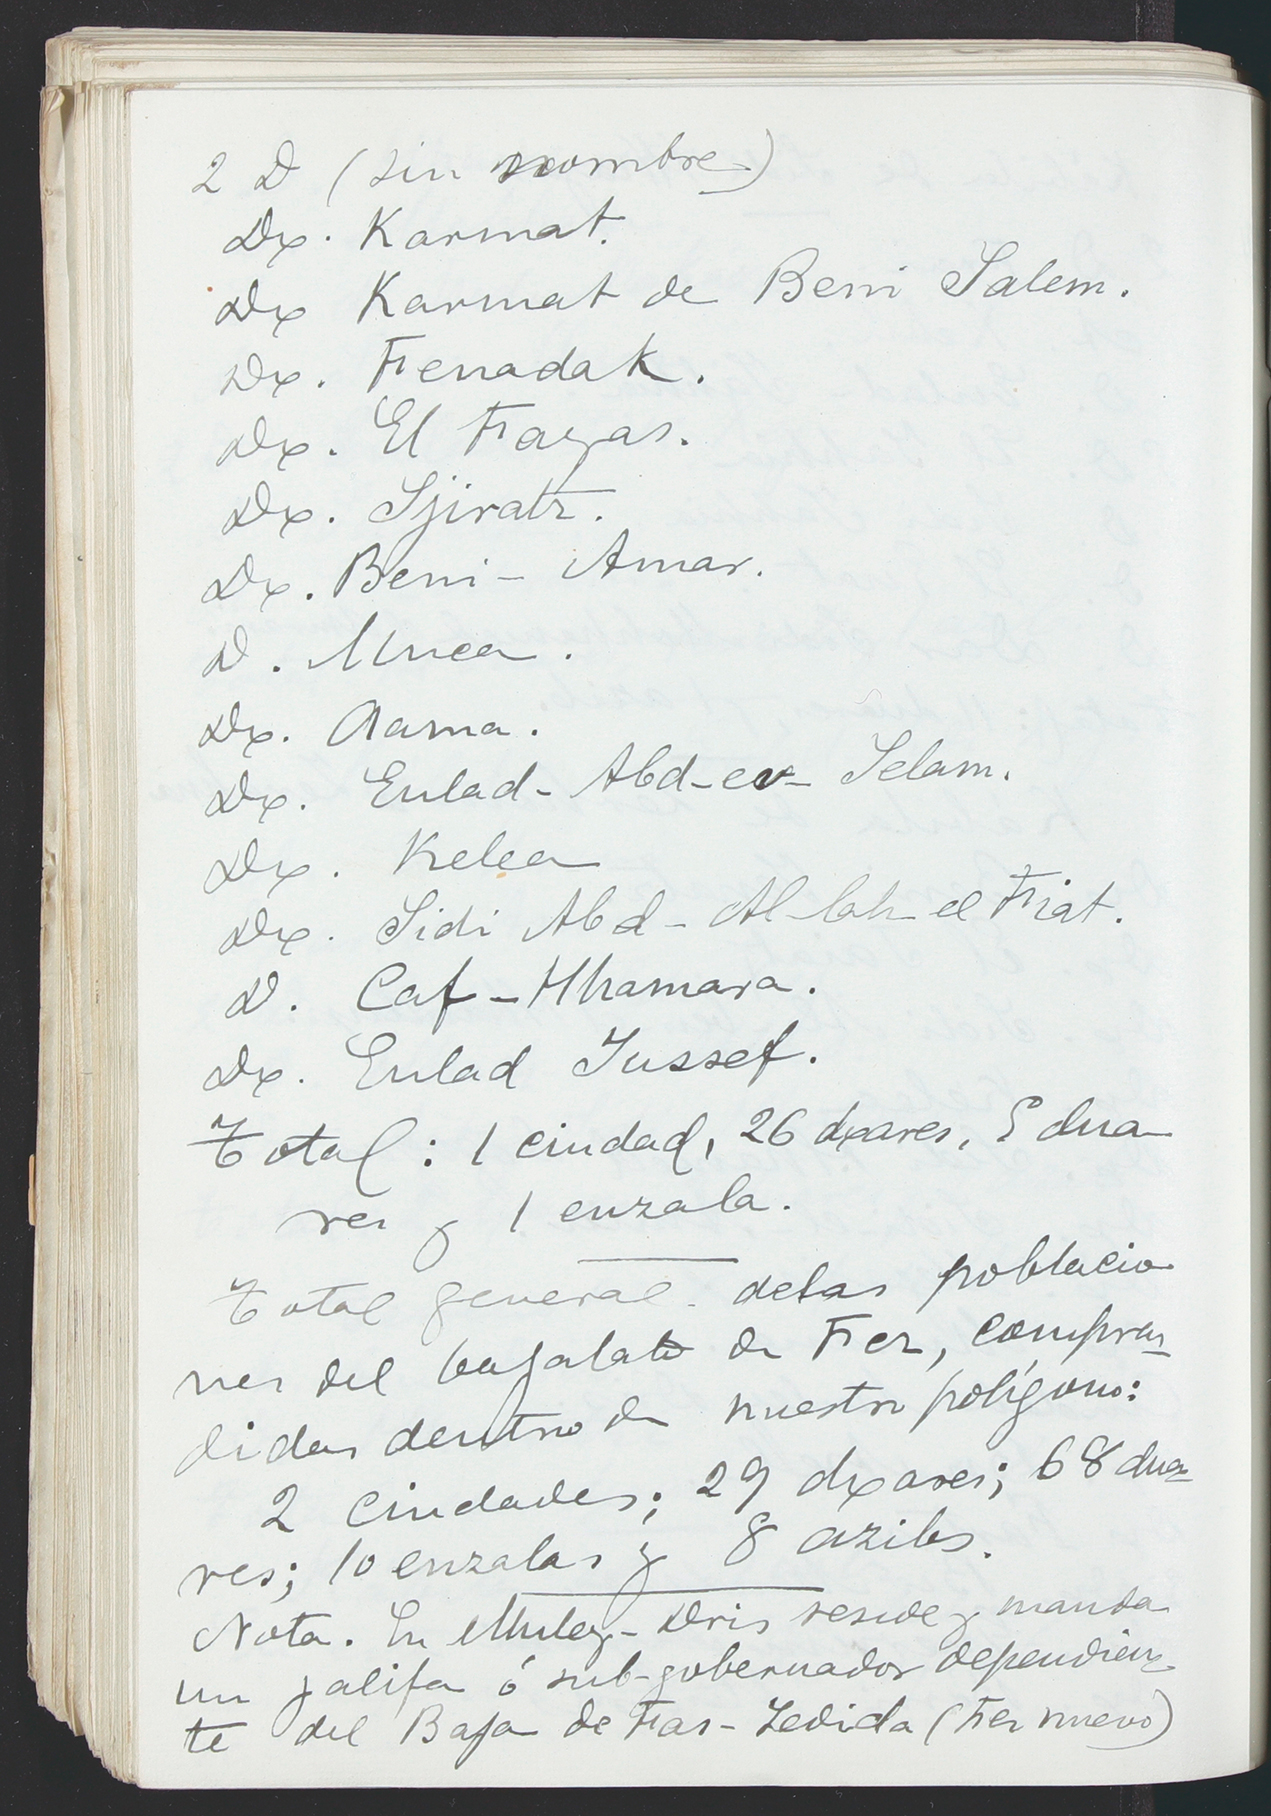 2 D (sin nombre)
Dx. Karmat.
Dx Karmat de Beni Salem.
Dx. Fenadak.
Dx. El Fazas.
Dx. Sjiratz.
Dx. Beni-Amar.
D. Mucea.
Dx. Aama.
Dx. Eulad-Abd-es-Selam.
Dx. Kelea
Dx. Sidi Abd-Al-lah-el Fiat.
D. Caf-Hhamara.
Dx. Eulad Yussef.
Total: 1 ciudad, 26 dxares, 5 dua
res y 1 enzala.
Total general delas poblacio
nes del bajalato de Fez, compren_
didas dentro de nuestro polígono:
2 ciudades; 29 dxares; 68 dua-
res; 10 enzalas y 8 azibs.
Nota. En Muley-Dris reside y manda
un jalifa ó sub-gobernador dependien-
te del Baja de Fas-Yedida (Fez nuevo)